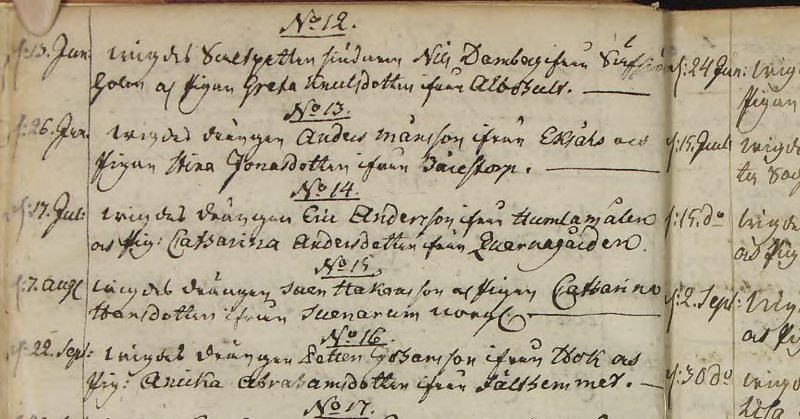 No 12.
d: 13. Jun: wigdes Salpetter siudaren Nils Damberg ifrån
Golen och Pigan Greta Knutsdotter ifrån Albohult.
No 13.
d: 26. Jun. wigdes drängen Anders Månsson ifrån Eksåhs och
Pigan Stina Jonasdotter ifrån
No 14.
d: 17. Jul: wigdes drängen Eric Andersson ifrån Humlamålen
och Pig: Catharina Andersdotter ifrån Quarnagården.
No 15.
d: 7. Aug: wigdes drängen Swen Håkansson och Pigan Catharina
Hansdotter ifrån Swenarum
No 16.
d: 22. Sept: wigdes drängen Petter Johansson ifrån Hok och
Pig: Anicka Abrahamsdotter ifrån
No 17.
d: 24 Jun: wigd
Pigan
d: 15. Juli wigde
d: 15. do wigde
och Pig
d: 2. Sept: wig
och Pig
d: 30 do wigde
Ulla